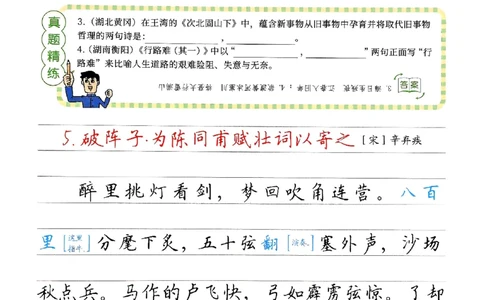 真题精练
3.（湖北黄冈）在王湾的《次北固山下》中，蕴含新事物从旧事物中孕育并将取代旧事物
哲理的两句诗是：____，____。
4.（湖南衡阳）《行路难（其一）》中以“____，____”两句正面写“行
路难”来比喻人生道路的艰难险阻、失意与无奈。
3. 海日生残夜 江春入旧年；4. 欲渡黄河冰塞川 将登太行雪满山
答案
5.破阵子·为陈同甫赋壮词以寄之［宋］辛弃疾
醉里挑灯看剑，梦回吹角连营。八百
里［这里指牛］分麾下炙，五十弦翻［演奏］塞外声，沙场
秋点兵。马作的卢飞快，弓如霹雳弦惊。了却